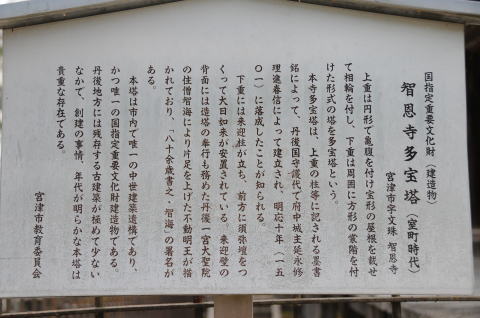 国指定重要文化財(建造物)
智恩寺多宝塔(室町時代)
宮津市字文珠 智恩寺
上重は円形で亀腹を付け宝形の屋根を載せ
て相輪を付し、下重は周囲に方形の裳階を付
けた形式の塔を多宝塔という。
本寺多宝塔は、上重の柱等に記される墨書
銘によって、丹後国守護代で府中城主延永修
理進春信によって建立され、明応十年(一五
〇一)に落成したことが知られる。
下重には来迎柱が立ち、前方に須弥壇をつ
くって大日如来が安置されている。来迎壁の
背面には造塔の奉行も務めた丹後一宮大聖院
の住僧智海により片足を上げた不動明王が描
かれており、「八十余歳書之、智海」の署名が
ある。
本塔は市内で唯一の中世建築遺構であり、
かつ唯一の国指定重要文化財建造物である。
丹後地方には残存する古建築が極めて少ない
なかで、創建の事情、年代が明らかな本塔は
貴重な存在である。
宮津市教育委員会